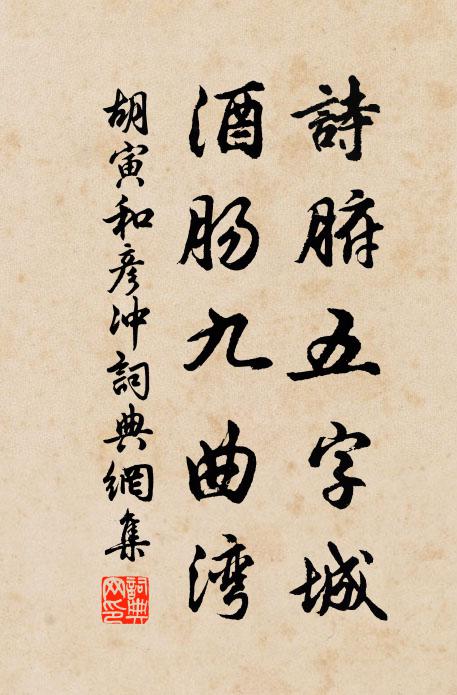 詩腑五字城
酒肠九曲湾
胡寅和彦冲詞典網集
詞典网印